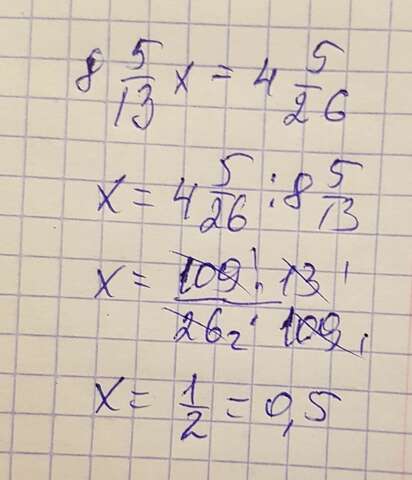 8 5/13 x = 4 5/26
x = 4 5/26 : 8 5/13
x = 109 · 13 / 26 · 109
x = 1/2 = 0,5